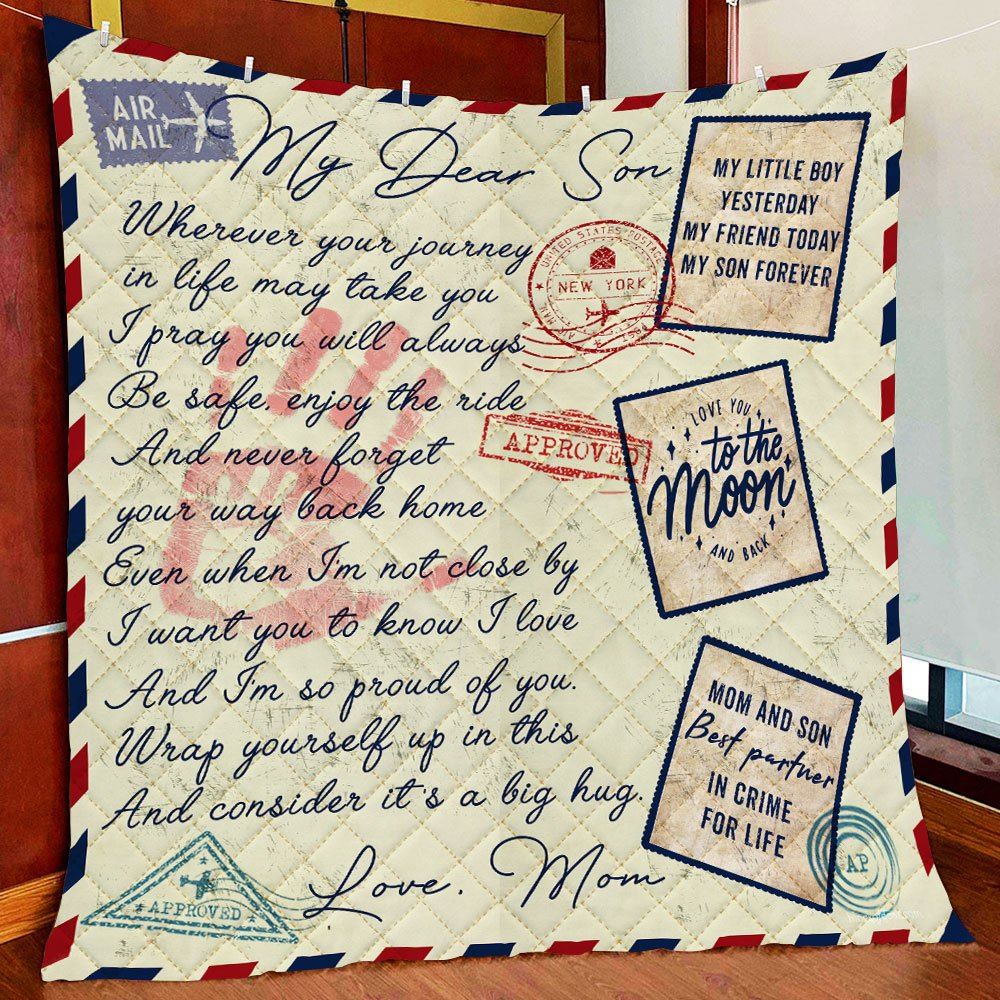 AIR
MAIL
My Dear Son
Wherever your journey
in life may take you
I pray you will always
Be safe, enjoy the ride
And never forget
your way back home
Even when I'm not close by
I want you to know I love
And I'm so proud of you.
Wrap yourself up in this
And consider it's a big hug.
Love, Mom
UNITED STATES POSTAGE
NEW YORK
APPROVED
MY LITTLE BOY
YESTERDAY
MY FRIEND TODAY
MY SON FOREVER
LOVE YOU
to the
Moon
AND BACK
MOM AND SON
Best partner
IN CRIME
FOR LIFE
APPROVED
AP